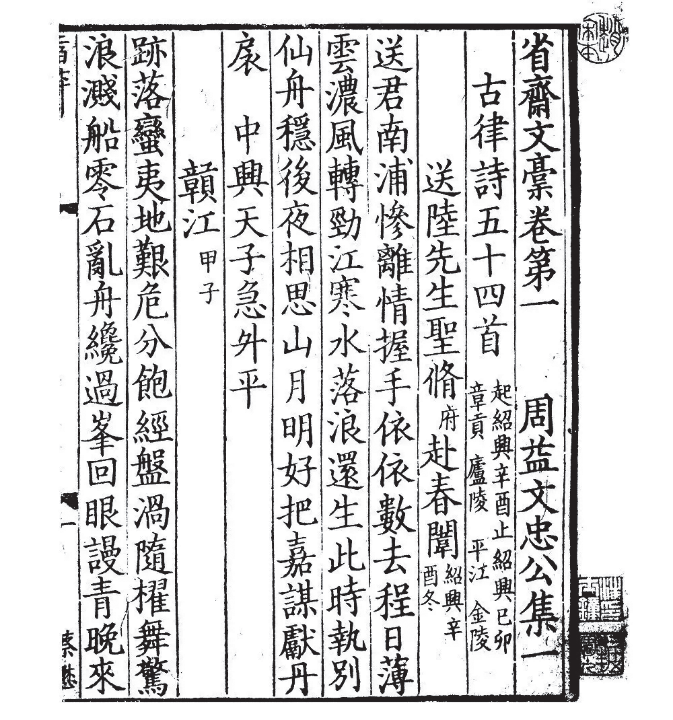 省齋文稾卷第一 周益文忠公集一
古律詩五十四首 起紹興辛酉止紹興己卯 章貢 廬陵 平江 金陵
送陸先生聖脩府赴春闈 紹興辛酉冬
送君南浦慘離情握手依依數去程日薄
雲濃風轉勁江寒水落浪還生此時執別
仙舟穩後夜相思山月明好把嘉謀獻丹
扆 中興天子急外平
贛江 甲子
跡落蠻夷地艱危分飽經盤渦隨櫂舞驚
浪濺船零石亂舟纔過峯回眼謾青晚來